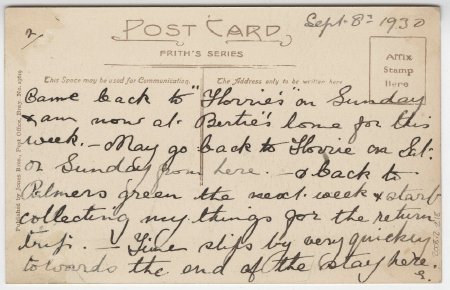 2,
Sept. 8th 1930
POST CARD
FRITH'S SERIES
Affix
Stamp
Here
This Space may be used for Communication.
The Address only to be written here
Came back to "Florrie's" on Sunday
& am now at Bertie's home for this
week. - May go back to Florrie on Sat.
or Sunday from here. - & back to
Palmers green the next week & start
collecting my things for the return
trip. - Time slips by very quickly
towards the end of the stay here.
Published by Jones Bros., Post Office,